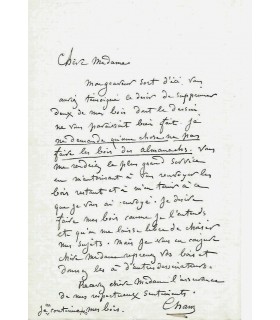 Chère Madame
Monsieur sort d'ici vous
avez témoigné le désir de supprimer
deux de mes bois dont le dessin
ne vous paraissait bien fait je
ne demande qu'une chose ne pas
faire les bois des almanachs. vous
me rendriez le plus grand service
en m'autorisant à renvoyer les
bois restant et à m'en taire à ce
que je vous ai envoyé. Je désire
faire mes bois comme je l'entends
et qu'on me laisse libre de choisir
mes sujets. Mais je vous en conjure
chère Madame reprenez vos bois et
donnez les à d'autres dessinateurs.
Recevez chère Madame l'assurance
de mes respectueux sentiments.
Cham
je continue mes bois.